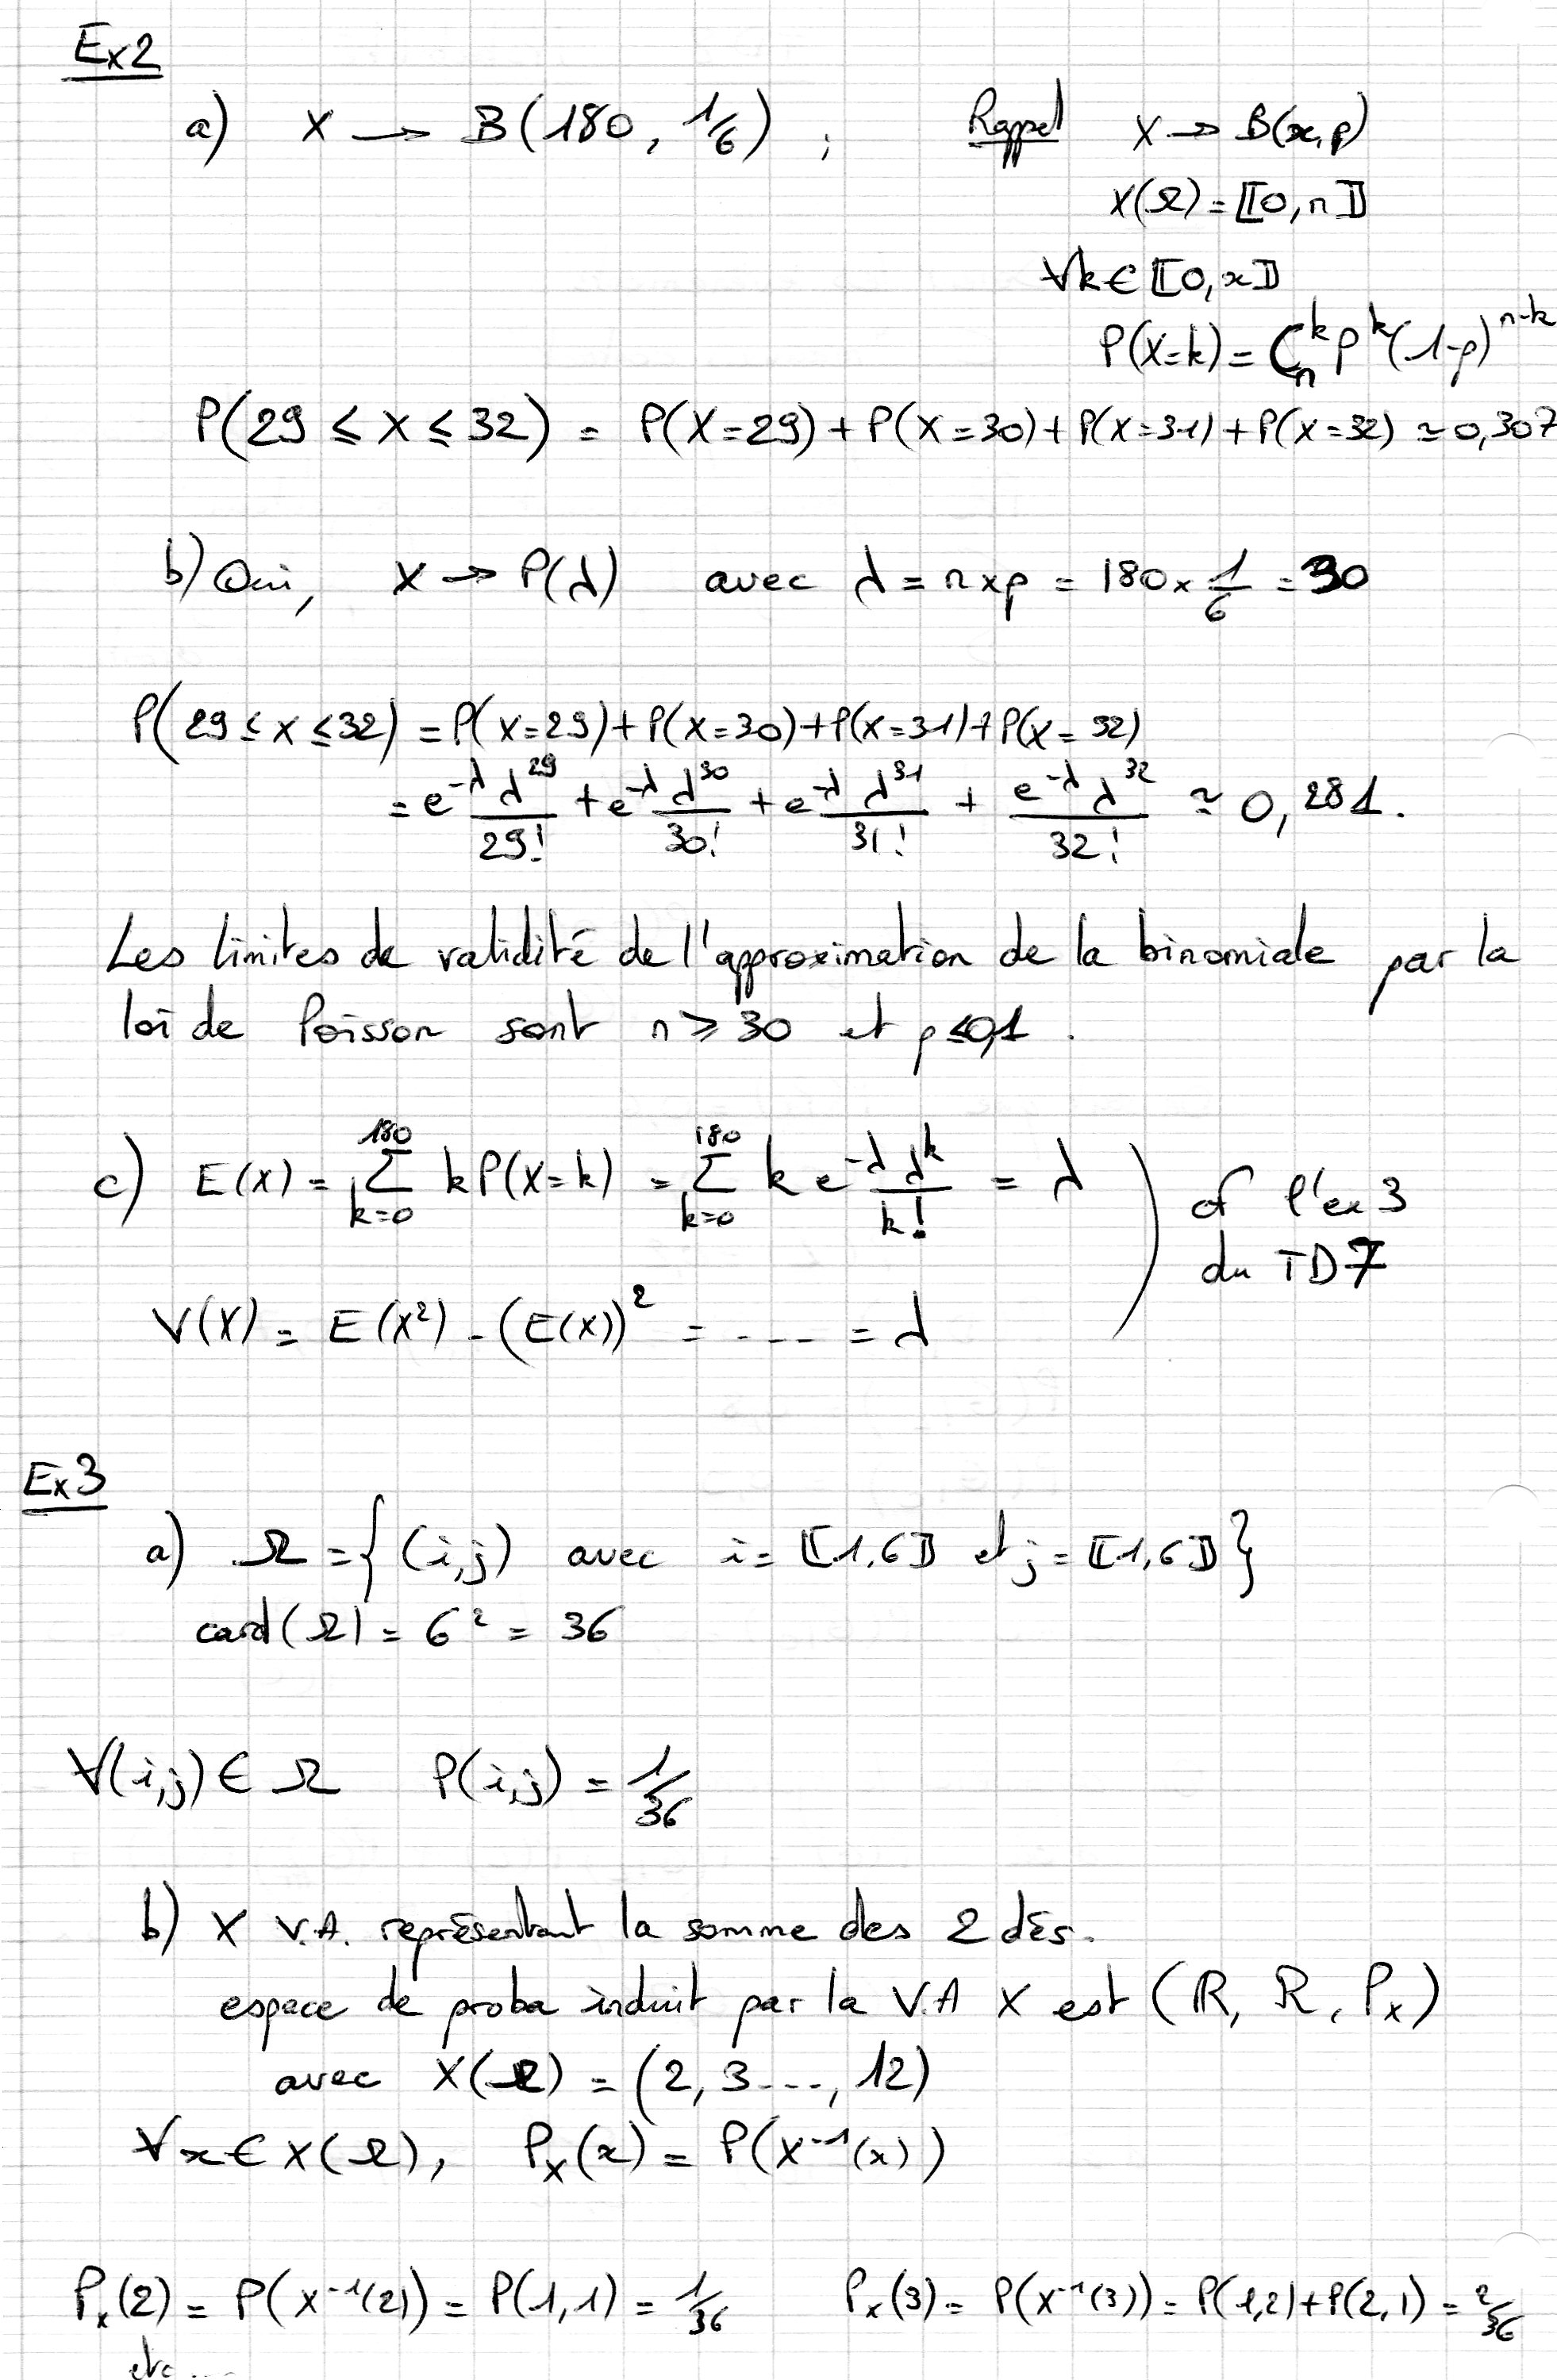 Ex2
a) X → B(180, 1/6) ; Rappel X → B(n,p)
X(Ω) = ⟦0,n⟧
∀k ∈ ⟦0,n⟧
P(X=k) = C_n^k p^k (1-p)^{n-k}
P(29 ≤ X ≤ 32) = P(X=29) + P(X=30) + P(X=31) + P(X=32) ≃ 0,307
b) Oui, X → P(λ) avec λ = n×p = 180 × 1/6 = 30
P(29 ≤ X ≤ 32) = P(X=29) + P(X=30) + P(X=31) + P(X=32)
= e^{-λ} λ^{29}/29! + e^{-λ} λ^{30}/30! + e^{-λ} λ^{31}/31! + e^{-λ} λ^{32}/32! ≃ 0,281.
Les limites de validité de l'approximation de la binomiale par la
loi de Poisson sont n ≥ 30 et p ≤ 0,1 .
c) E(X) = Σ_{k=0}^{180} k P(X=k) = Σ_{k=0}^{180} k e^{-λ} λ^k/k! = λ ) cf l'ex 3
du TD7
V(X) = E(X²) - (E(X))² = .... = λ
Ex3
a) Ω = { (i,j) avec i = ⟦1,6⟧ et j = ⟦1,6⟧ }
card(Ω) = 6² = 36
∀(i,j) ∈ Ω P(i,j) = 1/36
b) X V.A. représentant la somme des 2 dés.
espace de proba induit par la V.A X est (ℝ, R, P_X)
avec X(Ω) = (2, 3 ..., 12)
∀x ∈ X(Ω), P_X(x) = P(X^{-1}(x))
P_X(2) = P(X^{-1}(2)) = P(1,1) = 1/36 P_X(3) = P(X^{-1}(3)) = P(1,2) + P(2,1) = 2/36
etc ....